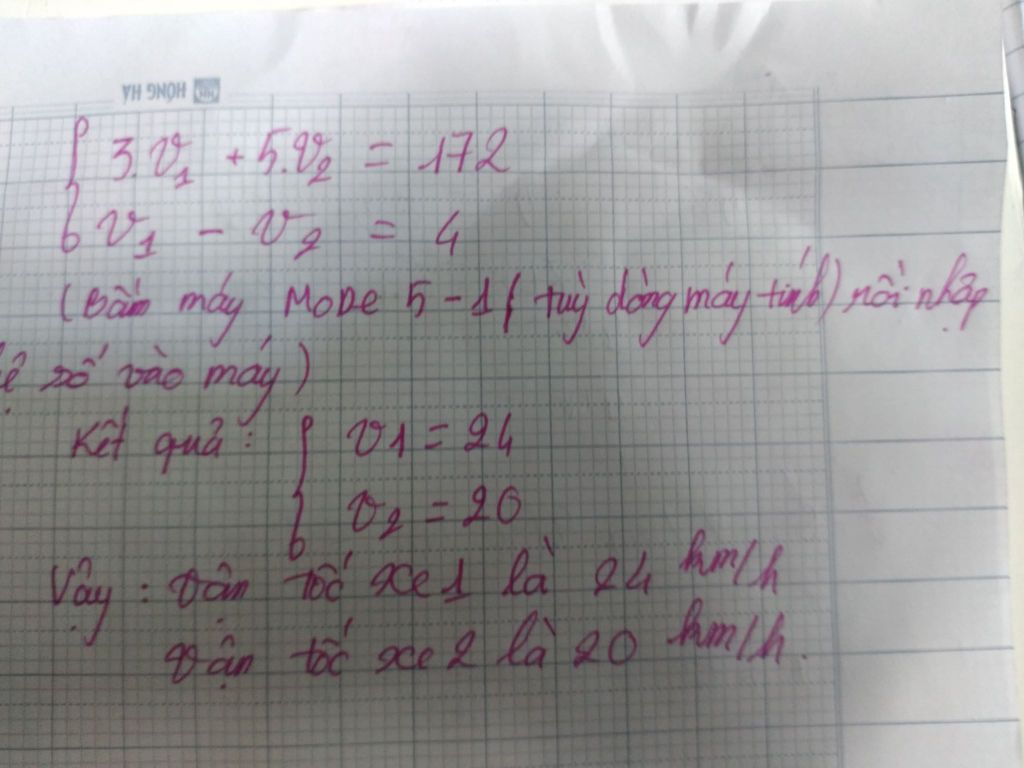 HỒNG HÀ
3.v₁ + 5.v₂ = 172
v₁ - v₂ = 4
(Bấm máy MODE 5-1 ( tuỳ dòng máy tính) rồi nhập
hệ số vào máy)
Kết quả: v1 = 24
v₂ = 20
Vậy: vận tốc xe 1 là 24 km/h
vận tốc xe 2 là 20 km/h.